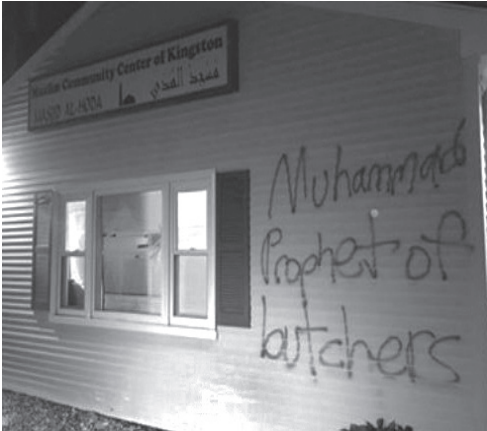 Muslim Community Center of Kingston
MASJID AL-HODA
مسجد الهدى
Muhammad
Prophet of
butchers